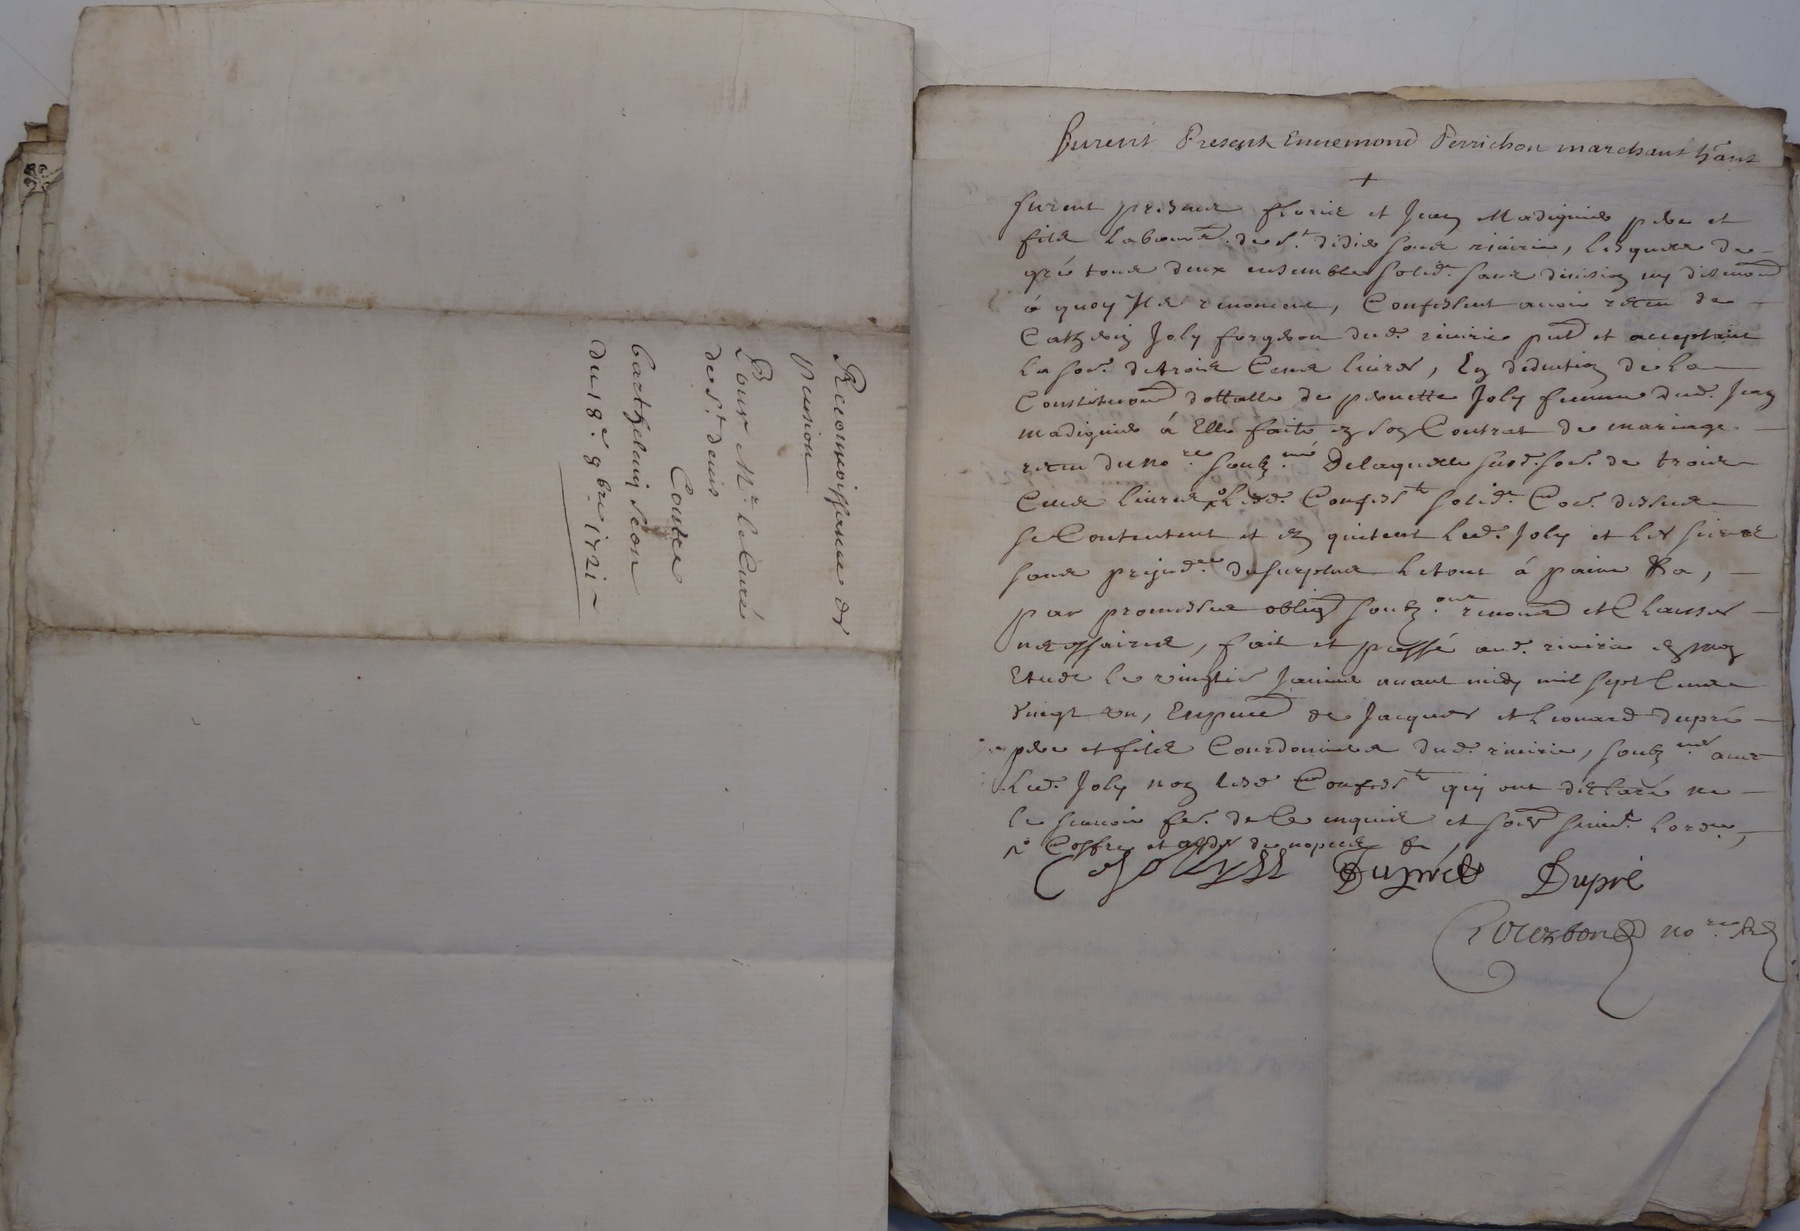 Reconnoissance de
pension
Pour Mr le Curé
de St denis
Contre
barthelemy Seon
du 18e 9bre 1721
furent Presant Ennemond Perrichon marchant
furent presens fleurie et Jean Madignier pere et
fils laboure. de St didier sous riuirie, lesquels de
gré tous deux ensembles solid. sans diuision ny dismon
á quoy Ils renoncent, Confessent auoir receu de
Catherin Joly forgeron dud. riuirie pnt et acceptant
la so. de trois Cens liures, En deduction de la
Constitution dottalle de pernette Joly femme dud. Jean
madignier á Elle faite en son Contrat de mariage
receu du nore soubzné De laquelle susd. so. de trois
Cens liures lesd. Confesst solid. Co. dessus
se Contentent et en quittent led. Joly et les siens
sans prejude du surplus le tout á paine &a,
par promesses oblig soubz renon et Clauses
necessaires, fait et passé aud. riuirie en mon
Etude le vingtie Januier auant midy mil sept Cens
vingt un, En pnce de Jacques et Léonard dupré
pere et fils Courdonniers dud. riuirie, soubznes auec
led. Joly non lesd Confesst qui ont déclaré ne
le scauoir fe. de Ce enquis et soes suiut. lord.,
Cojolly Dupré Dupré
nore